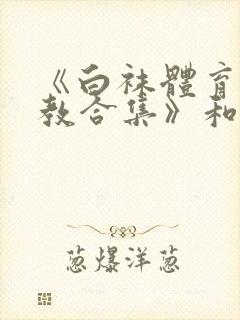 《白袜體育
教合集》和
葱爆洋葱